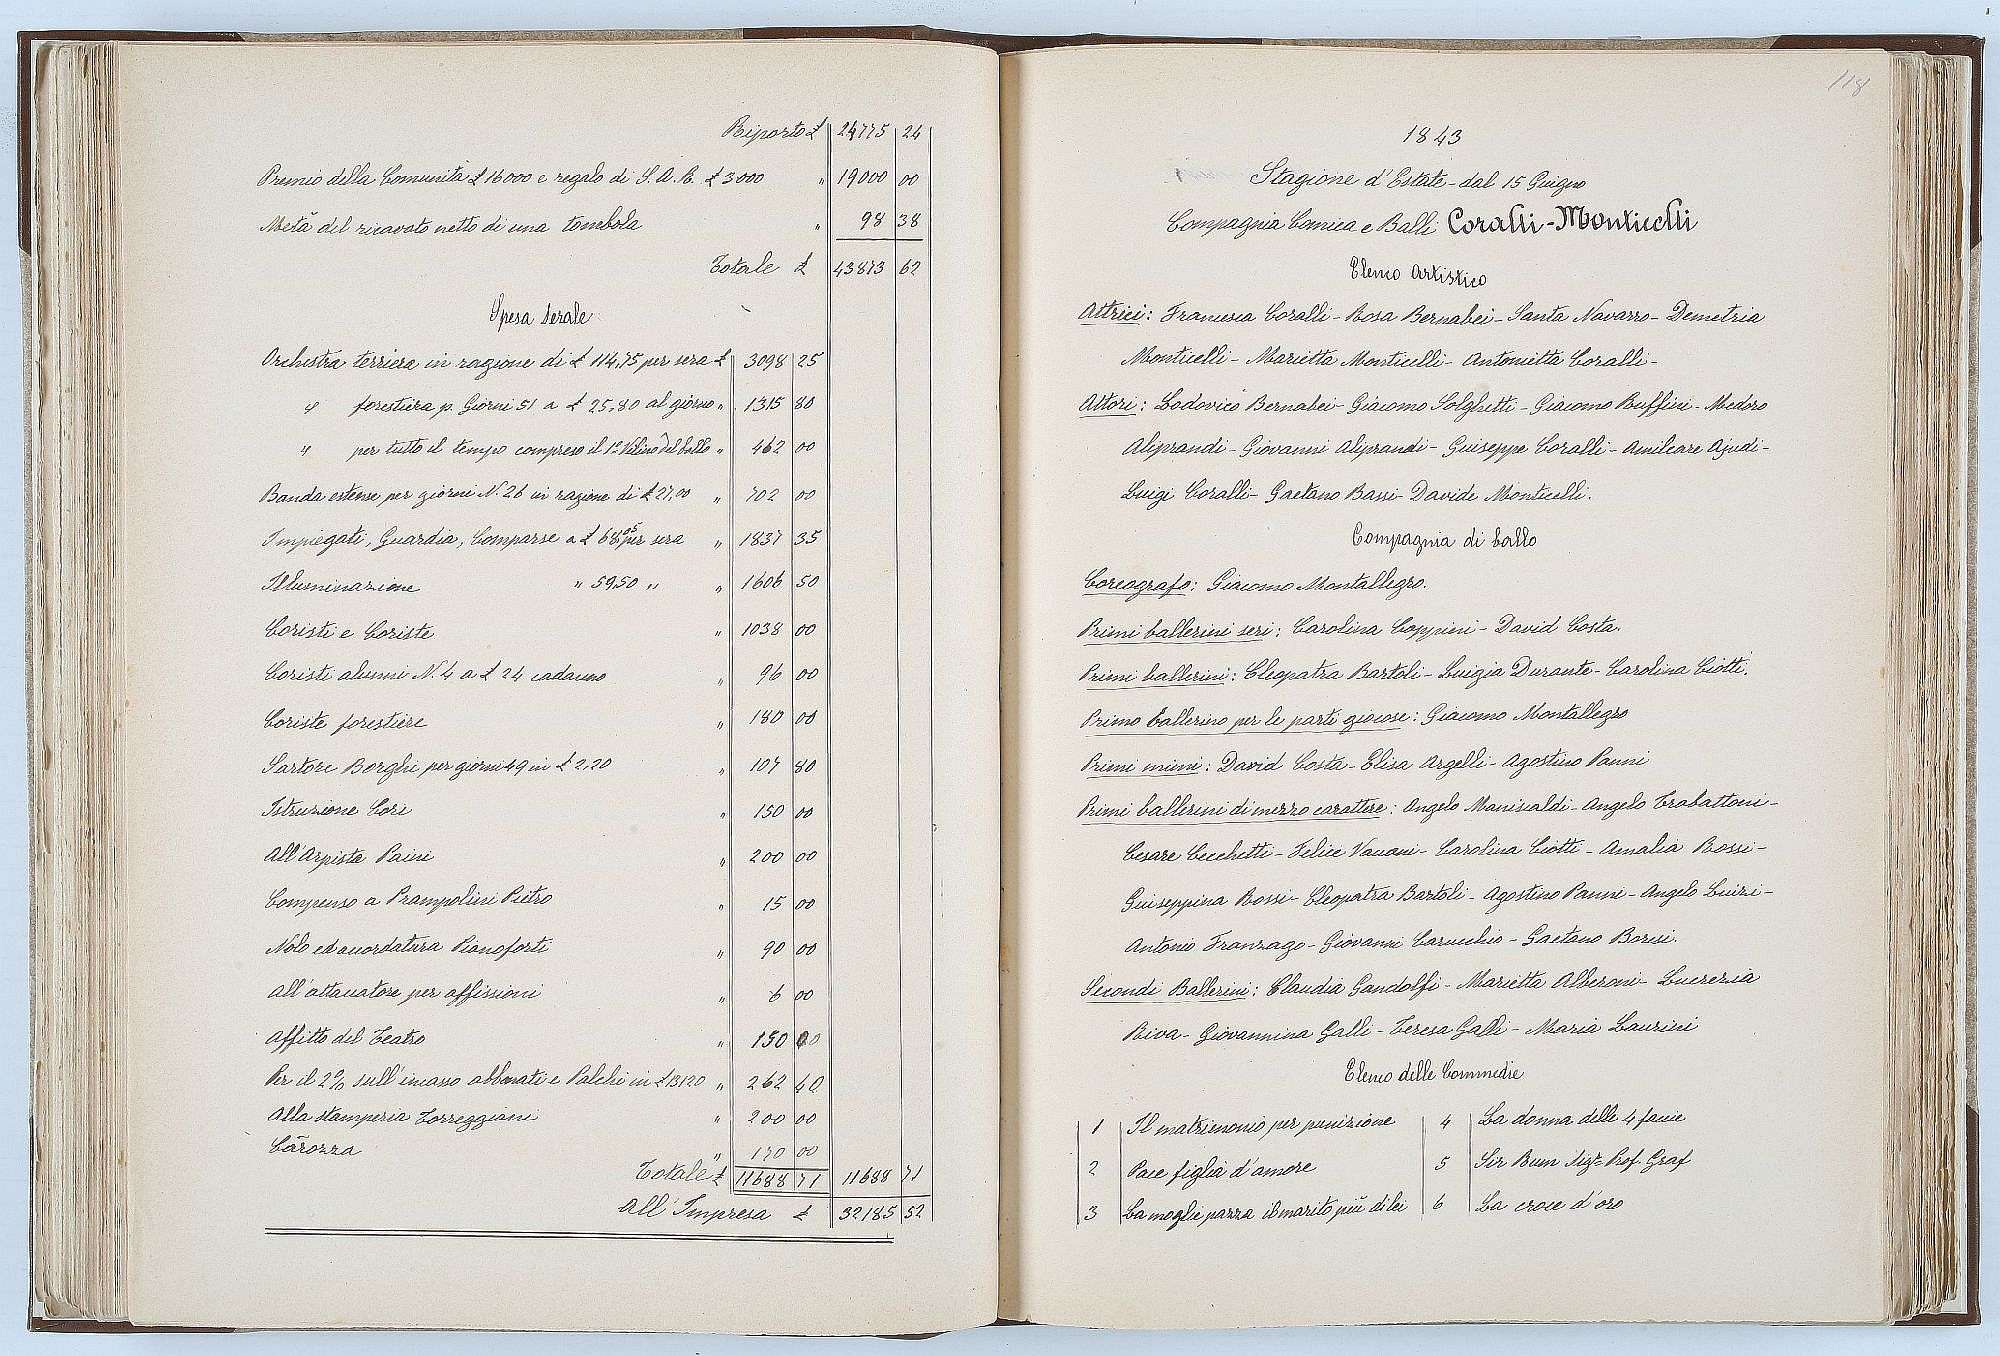 Riporto £ 24775 24
Premio della Comunità £ 16000 e regalo di S. A. R. £ 3000 " 19000 00
Metà del ricavato netto di una tombola " 98 38
Totale £ 43873 62
Spesa Serale
Orchestra terriera in ragione di £ 114,75 per sera £ 3098 25
" forestiera p. Giorni 51 a £ 25,80 al giorno " 1315 80
" per tutto il tempo compreso il 1° Violino del ballo " 462 00
Banda estense per giorni N. 26 in ragione di £ 27,00 " 702 00
Impiegati, Guardia, Comparse a £ 68,05 per sera " 1837 35
Illuminazione " 59,50 " " 1606 50
Coristi e Coriste " 1038 00
Coristi alunni N. 4 a £ 24 cadauno " 96 00
Coriste forestiere " 180 00
Sartore Borghi per giorni 49 in £ 2,20 " 107 80
Istruzione Cori " 150 00
All'Arpista Paini " 200 00
Compenso a Prampolini Pietro " 15 00
Nolo ed accordatura Pianoforti " 90 00
All'attacatore per affissioni " 6 00
Affitto del Teatro " 150 00
Per il 2% sull'incasso abbonati e Palchi in £ 13120 " 262 40
Alla stamperia Torreggiani " 200 00
Carozza " 170 00
Totale £ 11688 71 11688 71
All'Impresa £ 32185 52
118
1843
Stagione d'Estate - dal 15 Giugno
Compagnia Comica e Balli Coralli-Monticelli
Elenco Artistico
Attrici: Francesca Coralli - Rosa Bernabei - Santa Navarro - Demetria
Monticelli - Marietta Monticelli - Antonietta Coralli -
Attori: Lodovico Bernabei - Giacomo Solghetti - Giacomo Ruffini - Medoro
Aliprandi - Giovanni Aliprandi - Guiseppe Coralli - Amilcare Ajudi -
Luigi Coralli - Gaetano Bassi - Davide Monticelli.
Compagnia di ballo
Coreografo: Giacomo Montallegro.
Primi ballerini seri: Carolina Coppini - David Costa.
Primi ballerini: Cleopatra Bartoli - Luigia Durante - Carolina Ciotti.
Primo ballerino per le parti giocose: Giacomo Montallegro
Primi mimi: David Costa - Elisa Argelli - Agostino Panni
Primi ballerini di mezzo carattere: Angelo Maniscaldi - Angelo Trabattoni -
Cesare Cecchetti - Felice Vanani - Carolina Ciotti - Amalia Rossi -
Guiseppina Rossi - Cleopatra Bartoli - Agostino Panni - Angelo Luizi -
Antonio Franzago - Giovanni Carnecchio - Gaetano Boresi.
Secondi Ballerini: Claudia Gandolfi - Marietta Alberoni - Lucrezia
Riva - Giovannina Galli - Teresa Galli - Maria Laurini
Elenco delle Commedie
1 Il matrimonio per punizione 4 La donna delle 4 facie
2 Pace figlia d'amore 5 Sir Bum Prof. Graf
3 La moglie pazza il marito più di lei 6 La croce d'oro